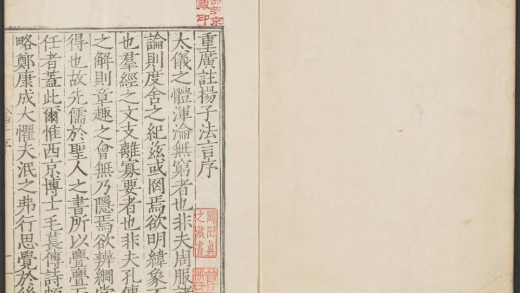 重廣註揚子法言序
太儀之體渾淪無窮者也非夫周服
論則度舍之紀茲或罔焉欲明緯象
也羣經之文支離寡要者也非夫孔傳
之解則章趣之會無乃隱焉欲辨綱
得也故先儒於聖人之書所以亹亹
任者蓋此爾惟西京博士毛萇傳詩
略鄭康成大懼夫泯之弗行思覺於後
岡田眞
之藏書